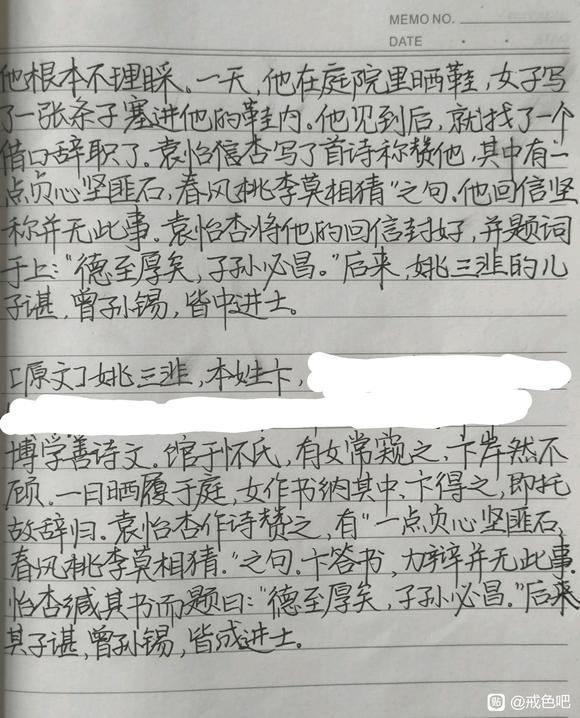 MEMO NO.
DATE
他根本不理睬。一天,他在庭院里晒鞋,女子写
了一张条子塞进他的鞋内。他见到后,就找了一个
借口辞职了。袁怡信杏写了首诗称赞他,其中有“一
点贞心坚匪石,春风桃李莫相猜”之句。他回信坚
称并无此事。袁怡杏将他的回信封好,并题词
于上:“德至厚矣,子孙必昌。”后来,姚三韭的儿
子谌,曾孙锡,皆中进士。
[原文]姚三韭,本姓卞,
博学善诗文。馆于怀氏,有女常窥之,卞岸然不
顾。一日晒履于庭,女作书纳其中、卞得之,即托
故辞归。袁怡杏作诗赞之,有“一点贞心坚匪石,
春风桃李莫相猜。”之句。卞答书,力辩并无此事。
怡杏缄其书而题曰:“德至厚矣,子孙必昌。”后来
其子谌,曾孙锡,皆成进士。
贴 @戒色吧